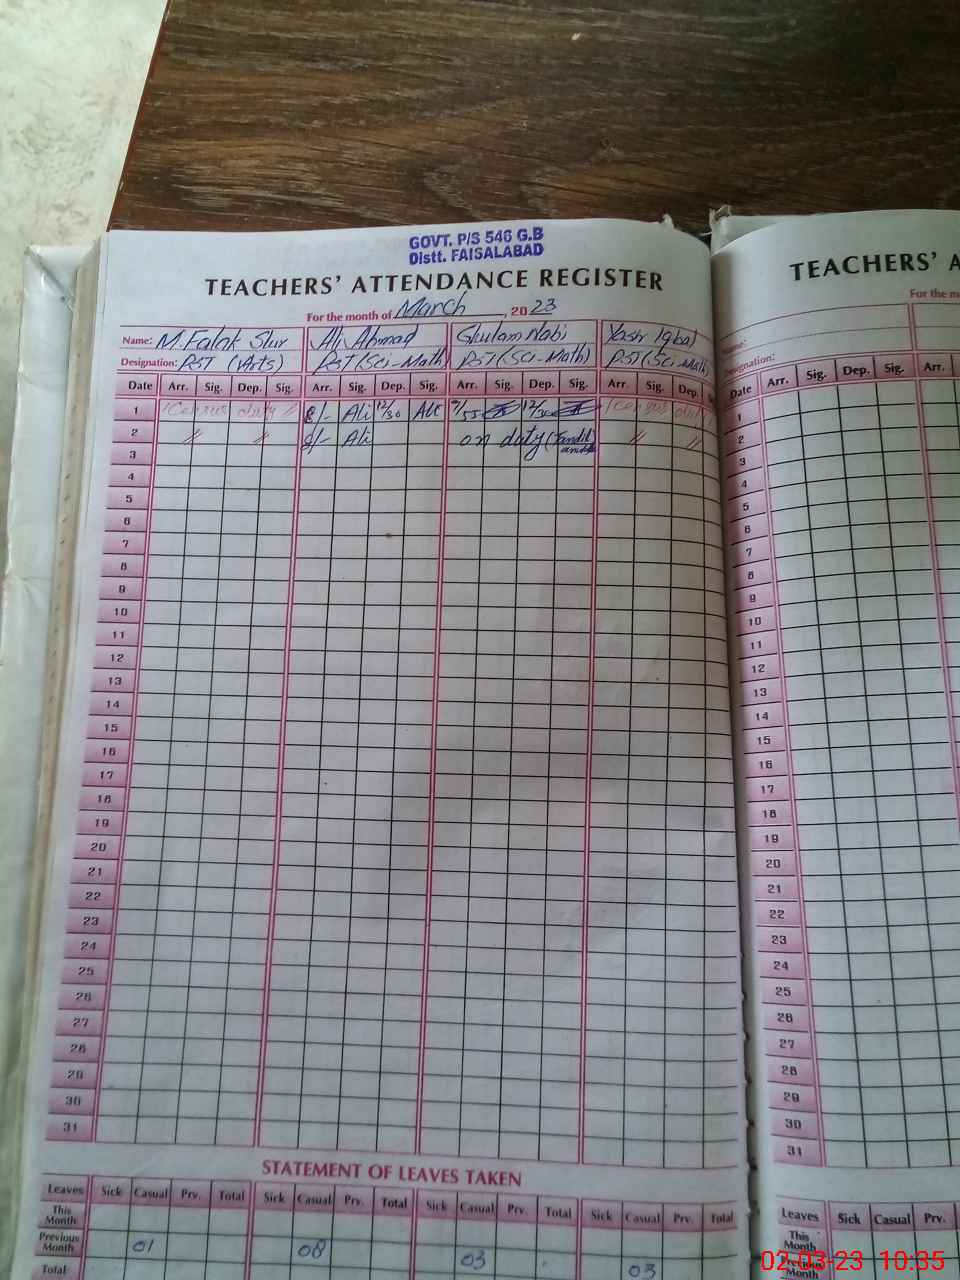 GOVT. P/S 546 G.B
Distt. FAISALABAD
TEACHERS' ATTENDANCE REGISTER
For the month of March, 2023
Name: M. Falak Sher Ali Ahmad Ghulam Nabi Yasir Iqbal
Designation: PST (Arts) PST (Sci-Math) PST (Sci-Math) PST (Sci-Math)
Date Arr. Sig. Dep. Sig. Arr. Sig. Dep. Sig. Arr. Sig. Dep. Sig. Arr. Sig. Dep. S
1 Census duty 8/- Ali 12/30 Ali 7/55 12/30 Census duty
2 〃 〃 8/- Ali on duty 〃 〃
3
4
5
6
7
8
9
10
11
12
13
14
15
16
17
18
19
20
21
22
23
24
25
26
27
28
29
30
31
STATEMENT OF LEAVES TAKEN
Leaves Sick Casual Prv. Total Sick Casual Prv. Total Sick Casual Prv. Total Sick Casual Prv. Total
This Month
Previous Month 01 08 03 03
Total
TEACHERS' A
For the m
Name:
Designation:
Date Arr. Sig. Dep. Sig. Arr.
1
2
3
4
5
6
7
8
9
10
11
12
13
14
15
16
17
18
19
20
21
22
23
24
25
26
27
28
29
30
31
Leaves Sick Casual Prv.
This Month
Previous Month
02-03-23 10:35